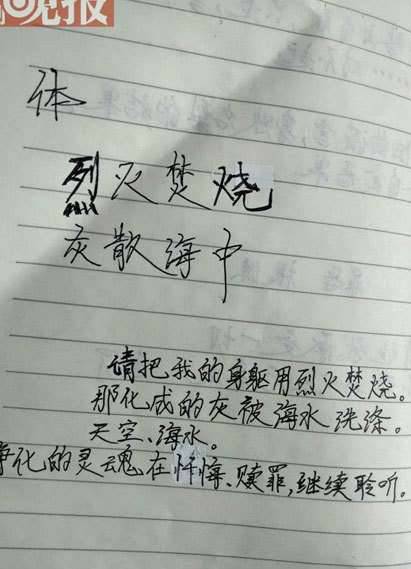 晚报
体
烈火焚烧
灰散海中
请把我的身躯用烈火焚烧。
那化成的灰被海水洗涤。
天空、海水。
净化的灵魂在忏悔、赎罪,继续聆听。